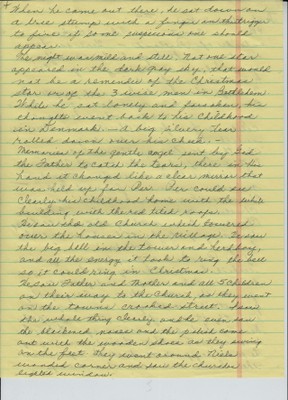 When he came out there, he sat down on
a tree stump with a finger in the trigger
to fire if some suspicious one should
appear.
The night was mild and still. Not one star
appeared in the dark gray sky, that would
not be a reminder of the Christmas
star over the 3 wise men in Bethlehem
While he sat lonely and forsaken, his
thoughts went back to his Childhood
in Denmark. — A big silvery Tear
rolled down over his Cheek. —
Memories of the gentle angel sent by God
the Father to catch the Tears, there in his
hand it changed like a clear mirror that
was held up for Per. Per could see
Clearly his childhood home with the white
building with the red tiled roofs.
He saw the old Church which towered
over the houses in the Village. He saw
the big bell in the Tower and
and all the energy it took to ring the Bell
so it could ring in Christmas.
He saw Father and Mother and all 5 children
on their way to the Church as they went
on the towns crooked street. I saw
the whole thing Clearly, and he even saw
the noses and the
out with the wooden shoes as they
on the feet. They went around Niels
corner and saw the Churches
window.